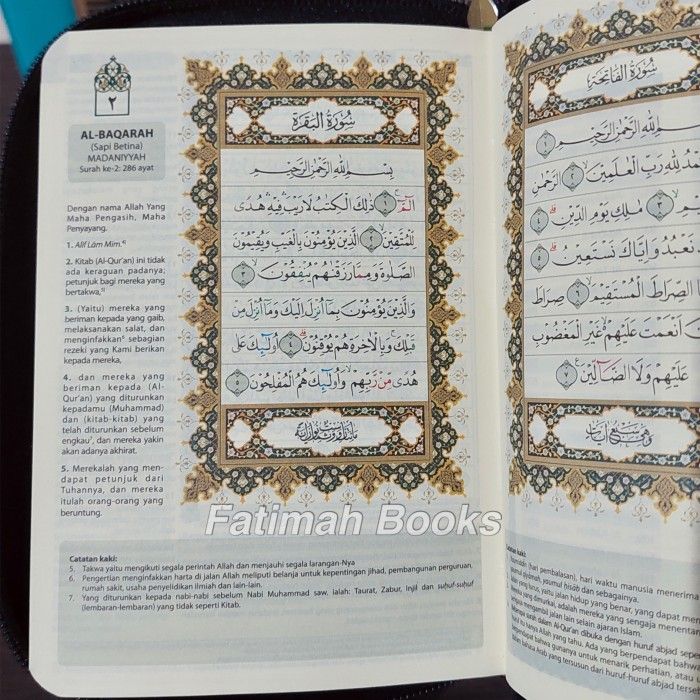 ٢
AL-BAQARAH
(Sapi Betina)
MADANIYYAH
Surah ke-2: 286 ayat
Dengan nama Allah Yang
Maha Pengasih, Maha
Penyayang.
1. Alif Lām Mīm.⁴⁾
2. Kitab (Al-Qur'an) ini tidak
ada keraguan padanya;
petunjuk bagi mereka yang
bertakwa,⁵⁾
3. (Yaitu) mereka yang
beriman kepada yang gaib,
melaksanakan salat, dan
menginfakkan⁶ sebagian
rezeki yang Kami berikan
kepada mereka,
4. dan mereka yang
beriman kepada (Al-
Qur'an) yang diturunkan
kepadamu (Muhammad)
dan (kitab-kitab) yang
telah diturunkan sebelum
engkau⁷, dan mereka yakin
akan adanya akhirat.
5. Merekalah yang men-
dapat petunjuk dari
Tuhannya, dan mereka
itulah orang-orang yang
beruntung.
سُورَةُ الْبَقَرَةِ
بِسْمِ اللّٰهِ الرَّحْمٰنِ الرَّحِيْمِ
الۤمّۤ ۚ ١ ذٰلِكَ الْكِتٰبُ لَا رَيْبَ فِيْهِ هُدًى
لِّلْمُتَّقِيْنَ ۙ ٢ الَّذِيْنَ يُؤْمِنُوْنَ بِالْغَيْبِ وَيُقِيْمُوْنَ
الصَّلٰوةَ وَمِمَّا رَزَقْنٰهُمْ يُنْفِقُوْنَ ۙ ٣
وَالَّذِيْنَ يُؤْمِنُوْنَ بِمَآ اُنْزِلَ اِلَيْكَ وَمَآ اُنْزِلَ مِنْ
قَبْلِكَ ۚ وَبِالْاٰخِرَةِ هُمْ يُوْقِنُوْنَ ۗ ٤ اُولٰۤىِٕكَ عَلٰى
هُدًى مِّنْ رَّبِّهِمْ ۙ وَاُولٰۤىِٕكَ هُمُ الْمُفْلِحُوْنَ ٥
Fatimah Books
Catatan kaki:
5. Takwa yaitu mengikuti segala perintah Allah dan menjauhi segala larangan-Nya
6. Pengertian menginfakkan harta di jalan Allah meliputi belanja untuk kepentingan jihad, pembangunan perguruan,
rumah sakit, usaha penyelidikan ilmiah dan lain-lain.
7. Yang diturunkan kepada nabi-nabi sebelum Nabi Muhammad saw. ialah: Taurat, Zabur, Injil dan suḥuf-suḥuf
(lembaran-lembaran) yang tidak seperti Kitab.
سُورَةُ الْفَاتِحَةِ
اللّٰهِ الرَّحْمٰنِ الرَّحِيْمِ ١
لِلّٰهِ رَبِّ الْعٰلَمِيْنَ ۙ ٢ الرَّحْمٰنِ
٣ مٰلِكِ يَوْمِ الدِّيْنِ ۗ ٤
نَعْبُدُ وَاِيَّاكَ نَسْتَعِيْنُ ۗ ٥
الصِّرَاطَ الْمُسْتَقِيْمَ ۙ ٦ صِرَاطَ
اَنْعَمْتَ عَلَيْهِمْ ەۙ غَيْرِ الْمَغْضُوْبِ
عَلَيْهِمْ وَلَا الضَّاۤلِّيْنَ ࣖ ٧
Catatan kaki:
(hari pembalasan), hari waktu manusia menerima